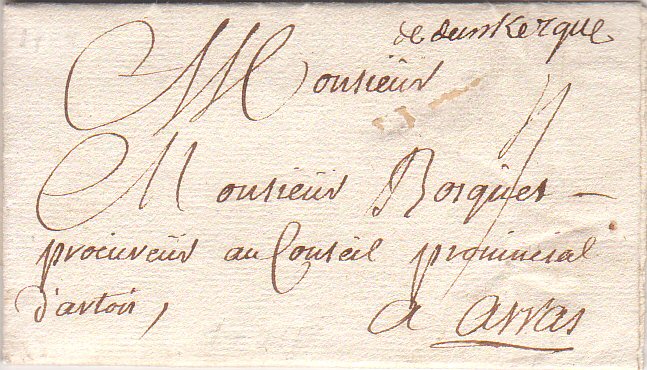 de dunkerque
Monsieur
Monsieur Bosquet
procureur au Conseil provincial
d'artois,
a arras